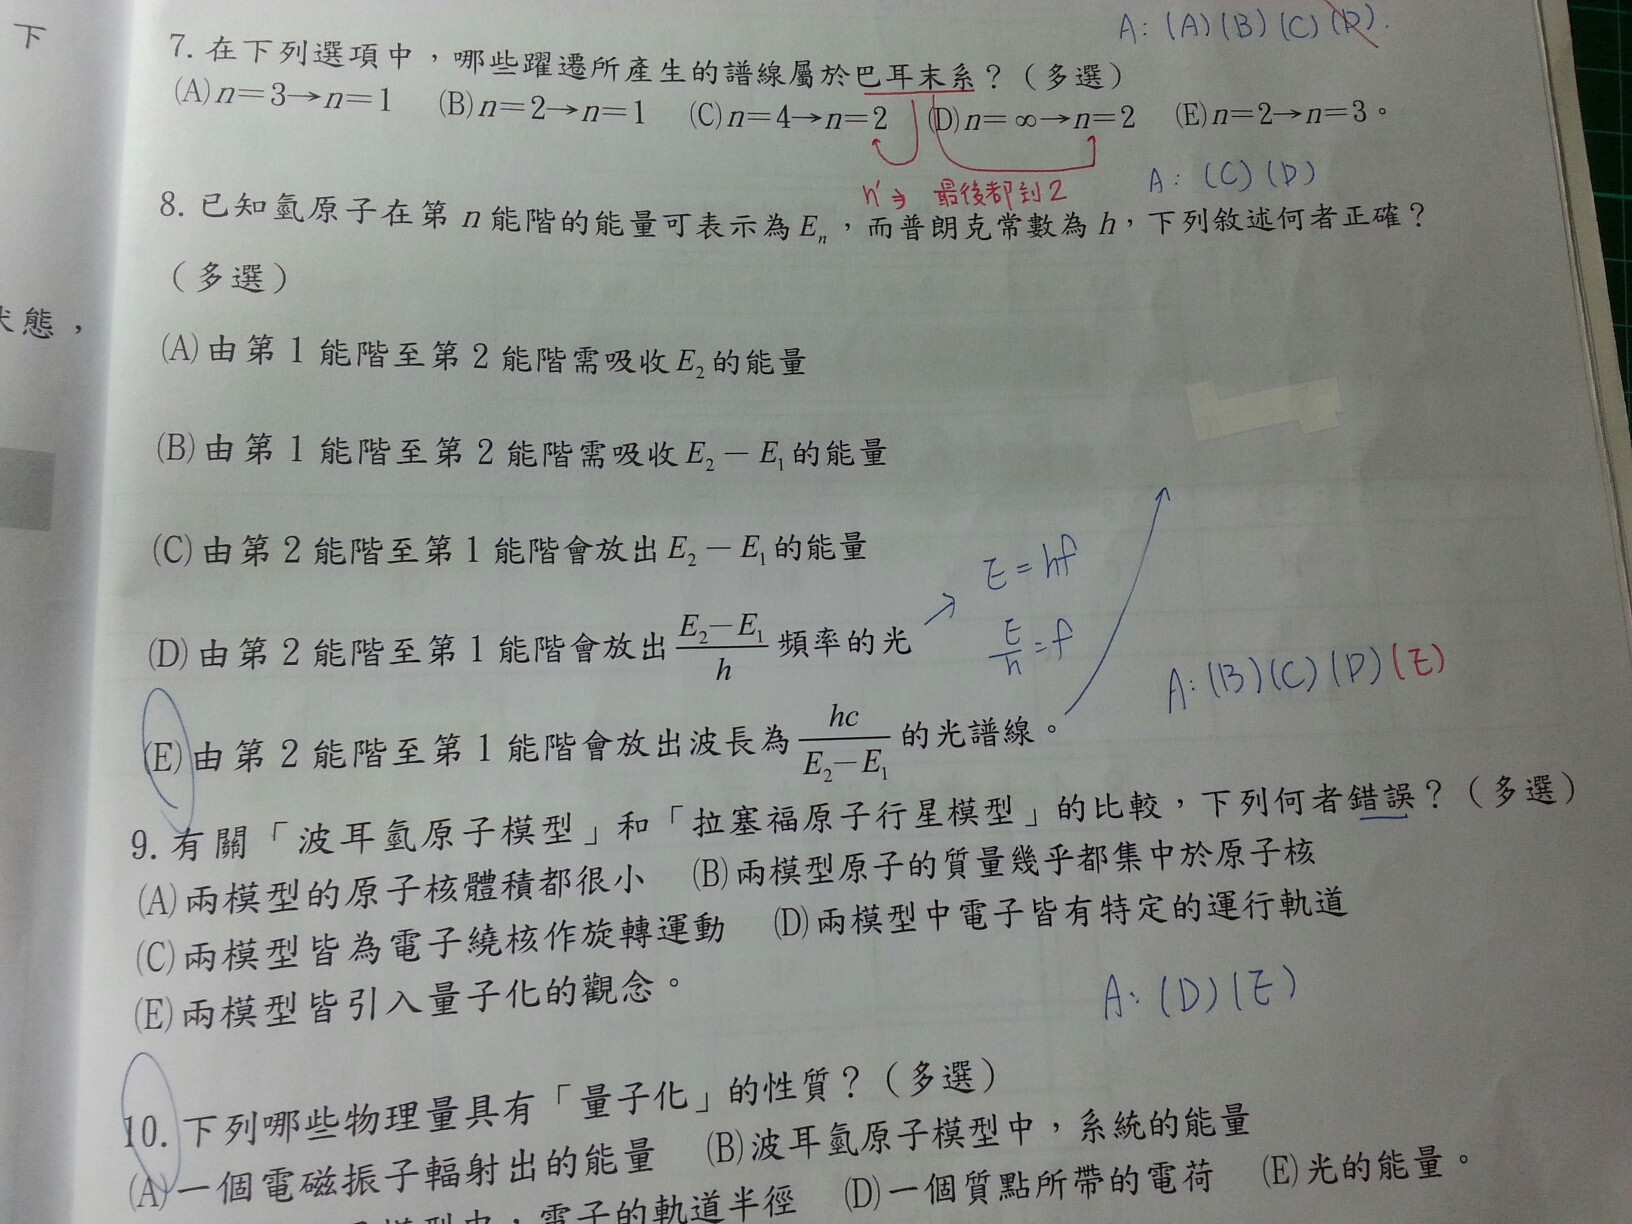 下
A: (A)(B)(C)(D).
7. 在下列選項中，哪些躍遷所產生的譜線屬於巴耳末系？（多選）
(A) n=3→n=1 (B) n=2→n=1 (C) n=4→n=2 (D) n=∞→n=2 (E) n=2→n=3。
n' → 最後都到2
A: (C)(D)
8. 已知氫原子在第 n 能階的能量可表示為 Eₙ，而普朗克常數為 h，下列敘述何者正確？
（多選）
態，
(A) 由第 1 能階至第 2 能階需吸收 E₂ 的能量
(B) 由第 1 能階至第 2 能階需吸收 E₂－E₁ 的能量
(C) 由第 2 能階至第 1 能階會放出 E₂－E₁ 的能量
E = hf
(D) 由第 2 能階至第 1 能階會放出 (E₂－E₁)/h 頻率的光
E/h = f
A: (B)(C)(D)(E)
(E) 由第 2 能階至第 1 能階會放出波長為 hc/(E₂－E₁) 的光譜線。
9. 有關「波耳氫原子模型」和「拉塞福原子行星模型」的比較，下列何者錯誤？（多選）
(A) 兩模型的原子核體積都很小 (B) 兩模型原子的質量幾乎都集中於原子核
(C) 兩模型皆為電子繞核作旋轉運動 (D) 兩模型中電子皆有特定的運行軌道
(E) 兩模型皆引入量子化的觀念。
A: (D)(E)
10. 下列哪些物理量具有「量子化」的性質？（多選）
(A) 一個電磁振子輻射出的能量 (B) 波耳氫原子模型中，系統的能量
模型中，電子的軌道半徑 (D) 一個質點所帶的電荷 (E) 光的能量。